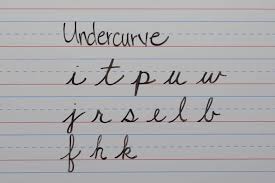 Undercurve
i t p u w
j r s e l b
f h k